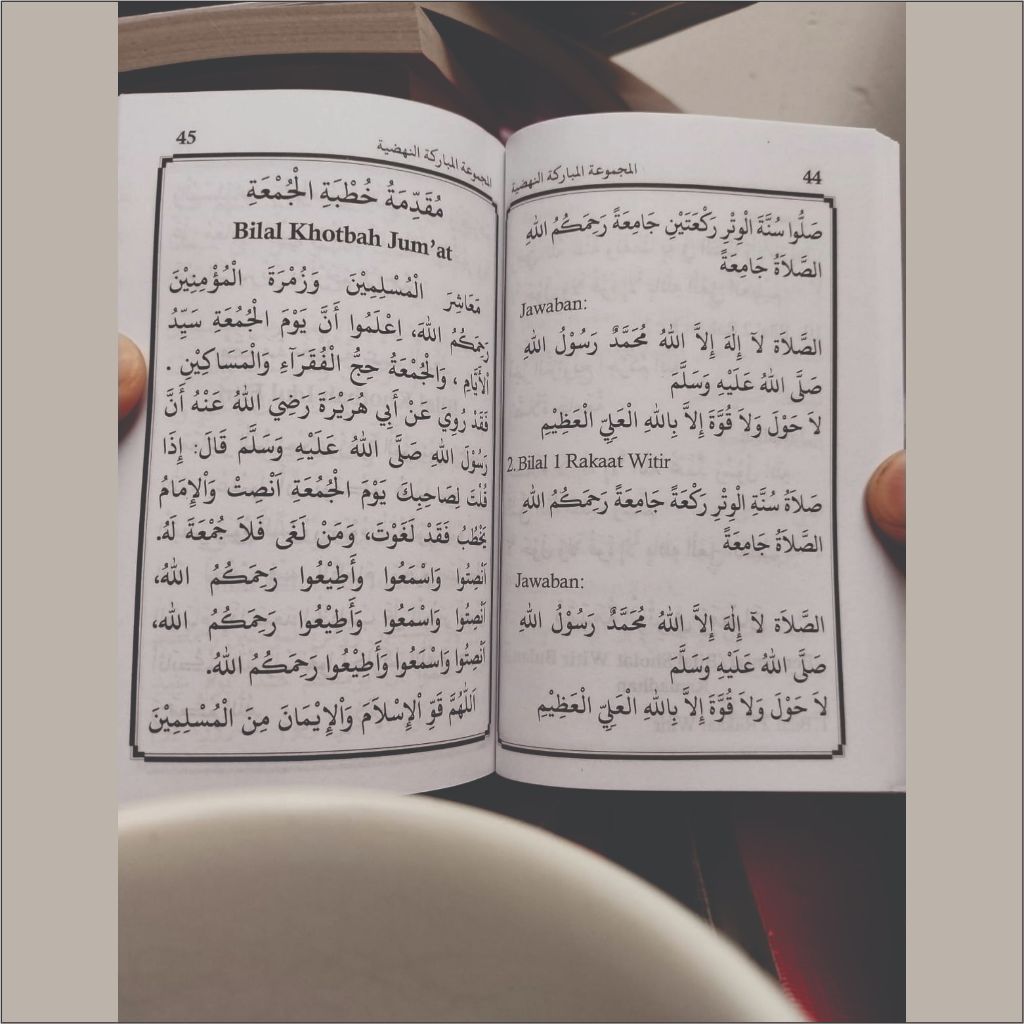 44
المجموعة المباركة النهضية
صَلُّوا سُنَّةَ الْوِتْرِ رَكْعَتَيْنِ جَامِعَةً رَحِمَكُمُ اللهِ
الصَّلاَةُ جَامِعَةً
Jawaban:
الصَّلاَة لآ إِلٰهَ إِلاَّ اللهُ مُحَمَّدٌ رَسُوْلُ اللهِ
صَلَّى اللهُ عَلَيْهِ وَسَلَّمَ
لاَ حَوْلَ وَلاَ قُوَّةَ إِلاَّ بِاللهِ الْعَلِيِّ الْعَظِيْمِ
2. Bilal 1 Rakaat Witir
صَلاَةُ سُنَّةِ الْوِتْرِ رَكْعَةً جَامِعَةً رَحِمَكُمُ اللهِ
الصَّلاَةُ جَامِعَةً
Jawaban:
الصَّلاَة لآ إِلٰهَ إِلاَّ اللهُ مُحَمَّدٌ رَسُوْلُ اللهِ
صَلَّى اللهُ عَلَيْهِ وَسَلَّمَ
لاَ حَوْلَ وَلاَ قُوَّةَ إِلاَّ بِاللهِ الْعَلِيِّ الْعَظِيْمِ
45
المجموعة المباركة النهضية
مُقَدِّمَةُ خُطْبَةِ الْجُمْعَةِ
Bilal Khotbah Jum’at
مَعَاشِرَ الْمُسْلِمِيْنَ وَزُمْرَةَ الْمُؤْمِنِيْنَ
رَحِمَكُمُ اللهَ، اِعْلَمُوا أَنَّ يَوْمَ الْجُمُعَةِ سَيِّدُ
اْلأَيَّامِ ، وَالْجُمْعَةُ حِجُّ الْفُقَرَآءِ وَالْمَسَاكِيْنِ .
فَقَدْ رُوِيَ عَنْ أَبِي هُرَيْرَةَ رَضِيَ اللهُ عَنْهُ أَنَّ
رَسُوْلَ اللهِ صَلَّى اللهُ عَلَيْهِ وَسَلَّمَ قَالَ: إِذَا
قُلْتَ لِصَاحِبِكَ يَوْمَ الْجُمُعَةِ اَنْصِتْ وَاْلإِمَامُ
يَخْطُبُ فَقَدْ لَغَوْتَ، وَمَنْ لَغَى فَلاَ جُمْعَةَ لَهُ.
اَنْصِتُوا وَاسْمَعُوا وَأَطِيْعُوا رَحِمَكُمُ اللهُ،
اَنْصِتُوا وَاسْمَعُوا وَأَطِيْعُوا رَحِمَكُمُ الله،
اَنْصِتُوا وَاسْمَعُوا وَأَطِيْعُوا رَحِمَكُمُ اللهُ.
اَللّٰهُمَّ قَوِّ اْلإِسْلاَمَ وَاْلإِيْمَانَ مِنَ الْمُسْلِمِيْنَ